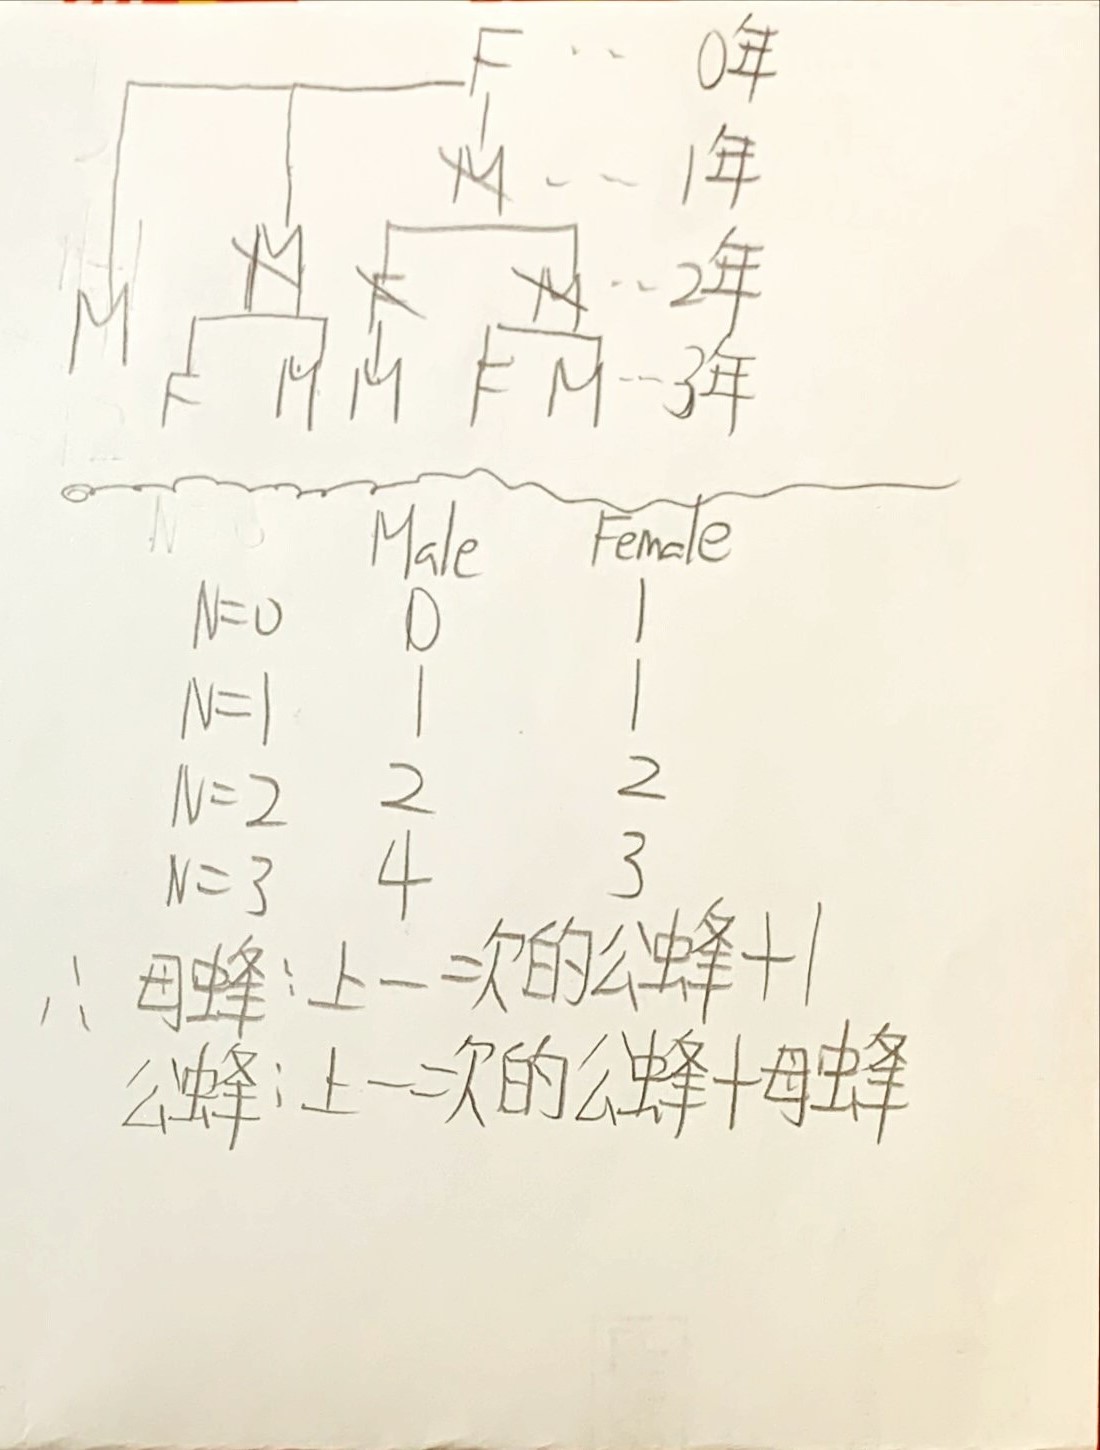 F ‥ 0年
M -- 1年
M M F M ‥ 2年
F M M F M -- 3年
Male Female
N=0 0 1
N=1 1 1
N=2 2 2
N=3 4 3
∴ 母蜂:上一次的公蜂+1
公蜂:上一次的公蜂+母蜂